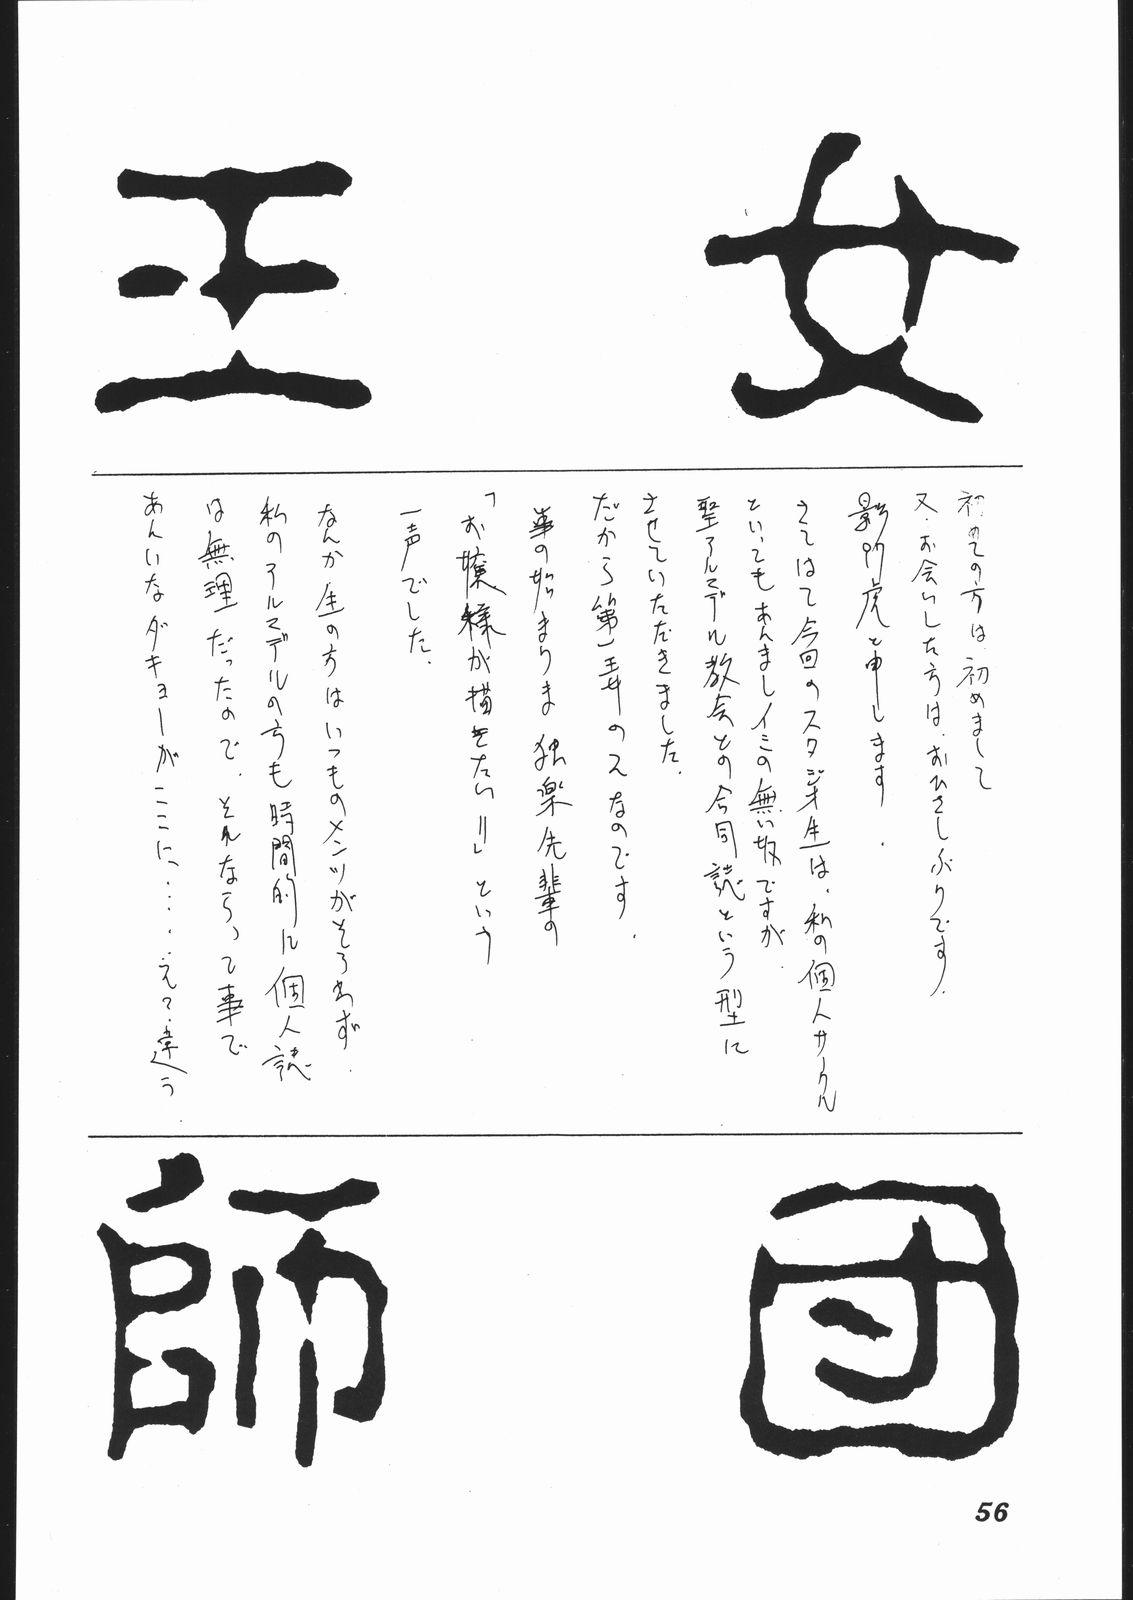 女王
初めての方は、初めまして
又、お会いした方は、おひさしぶりです、
影狩虎と申します.
さてはて今回のスタジオ生は、私の個人サークル
といってもあんましイミの無い奴ですが
聖アルマデル教会との合同誌という型に
させていただきました.
だから第一弄のえなのです.
事の始まりま独楽先輩の
「お嬢様が描きたい!!」という
一声でした.
なんか生の方はいつものメンツがそろわず.
私のアルマデルの方も時間的に個人誌
は無理だったので、それならって事で
あんいなダキョーがここに、.....えっ.違う.
団師
56